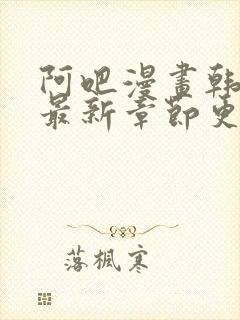 阿吧漫畫韩
最新章節更
落楓寒